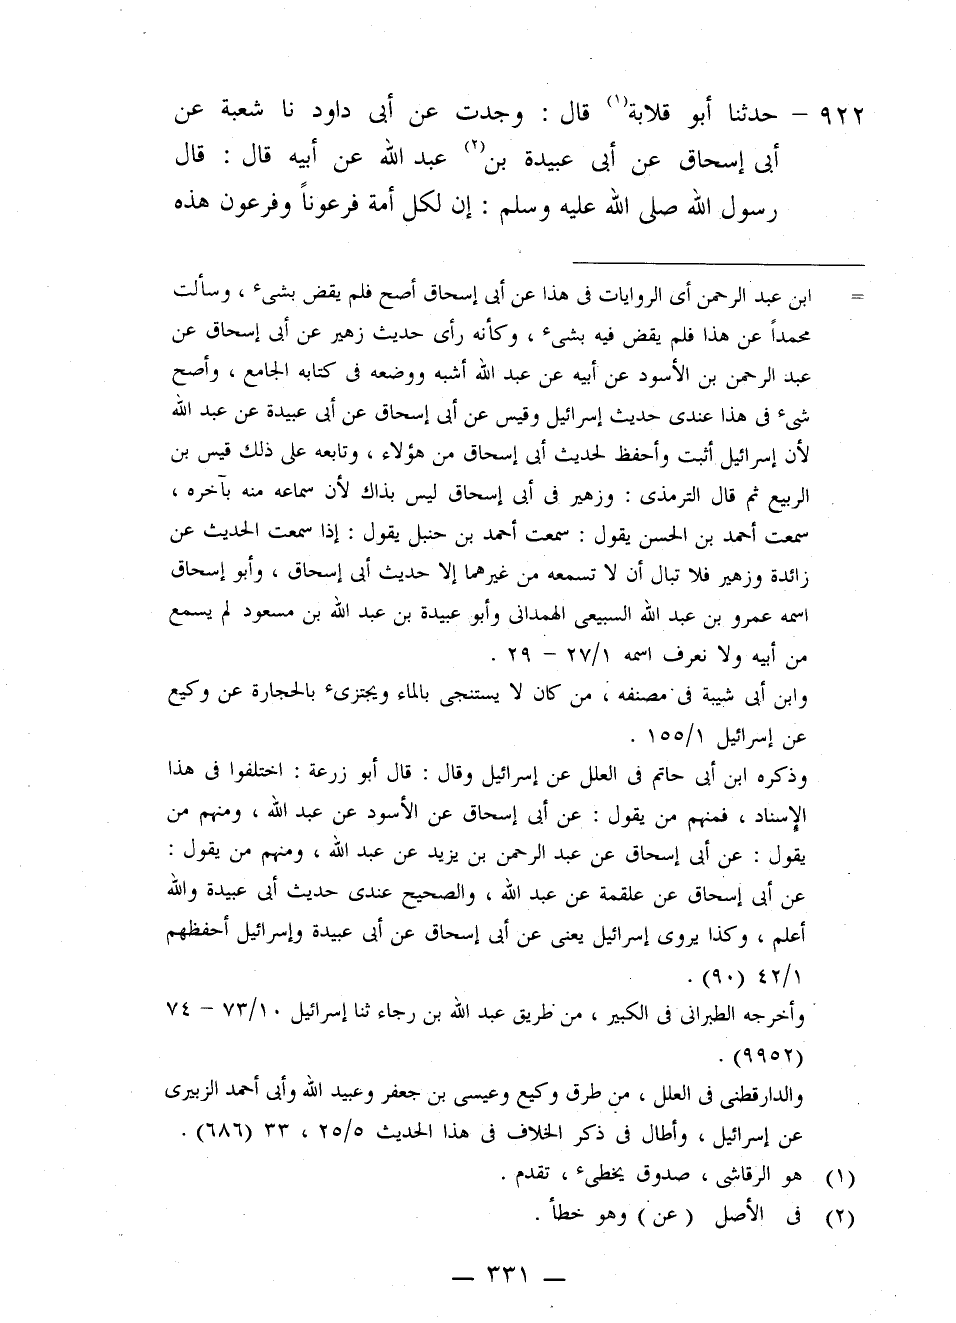 ٩٢٢ – حدثنا أبو قلابة(١) قال : وجدت عن أبى داود نا شعبة عن
أبى إسحاق عن أبى عبيدة بن(٢) عبد الله عن أبيه قال : قال
رسول الله صلى الله عليه وسلم : إن لكل أمة فرعوناً وفرعون هذه
= ابن عبد الرحمن أى الروايات فى هذا عن أبى إسحاق أصح فلم يقض بشىء ، وسألت
محمداً عن هذا فلم يقض فيه بشىء ، وكأنه رأى حديث زهير عن أبى إسحاق عن
عبد الرحمن بن الأسود عن أبيه عن عبد الله أشبه ووضعه فى كتابه الجامع ، وأصح
شىء فى هذا عندى حديث إسرائيل وقيس عن أبى إسحاق عن أبى عبيدة عن عبد الله
لأن إسرائيل أثبت وأحفظ لحديث أبى إسحاق من هؤلاء ، وتابعه على ذلك قيس بن
الربيع ثم قال الترمذى : وزهير فى أبى إسحاق ليس بذاك لأن سماعه منه بآخره ،
سمعت أحمد بن الحسن يقول : سمعت أحمد بن حنبل يقول : إذا سمعت الحديث عن
زائدة وزهير فلا تبال أن لا تسمعه من غيرهما إلا حديث أبى إسحاق ، وأبو إسحاق
اسمه عمرو بن عبد الله السبيعى الهمدانى وأبو عبيدة بن عبد الله بن مسعود لم يسمع
من أبيه ولا نعرف اسمه ٢٧/١ – ٢٩ .
وابن أبى شيبة فى مصنفه ، من كان لا يستنجى بالماء ويجتزىء بالحجارة عن وكيع
عن إسرائيل ١٥٥/١ .
وذكره ابن أبى حاتم فى العلل عن إسرائيل وقال : قال أبو زرعة : اختلفوا فى هذا
الإسناد ، فمنهم من يقول : عن أبى إسحاق عن الأسود عن عبد الله ، ومنهم من
يقول : عن أبى إسحاق عن عبد الرحمن بن يزيد عن عبد الله ، ومنهم من يقول :
عن أبى إسحاق عن علقمة عن عبد الله ، والصحيح عندى حديث أبى عبيدة والله
أعلم ، وكذا يروى إسرائيل يعنى عن أبى إسحاق عن أبى عبيدة وإسرائيل أحفظهم
٤٢/١ (٩٠) .
وأخرجه الطبرانى فى الكبير ، من طريق عبد الله بن رجاء ثنا إسرائيل ٧٣/١٠ – ٧٤
(٩٩٥٢) .
والدارقطنى فى العلل ، من طرق وكيع وعيسى بن جعفر وعبيد الله وأبى أحمد الزبيرى
عن إسرائيل ، وأطال فى ذكر الخلاف فى هذا الحديث ٢٥/٥ ، ٣٣ (٦٨٦) .
(١) هو الرقاشى ، صدوق يخطىء ، تقدم .
(٢) فى الأصل ( عن ) وهو خطأ .
— ٣٣١ —